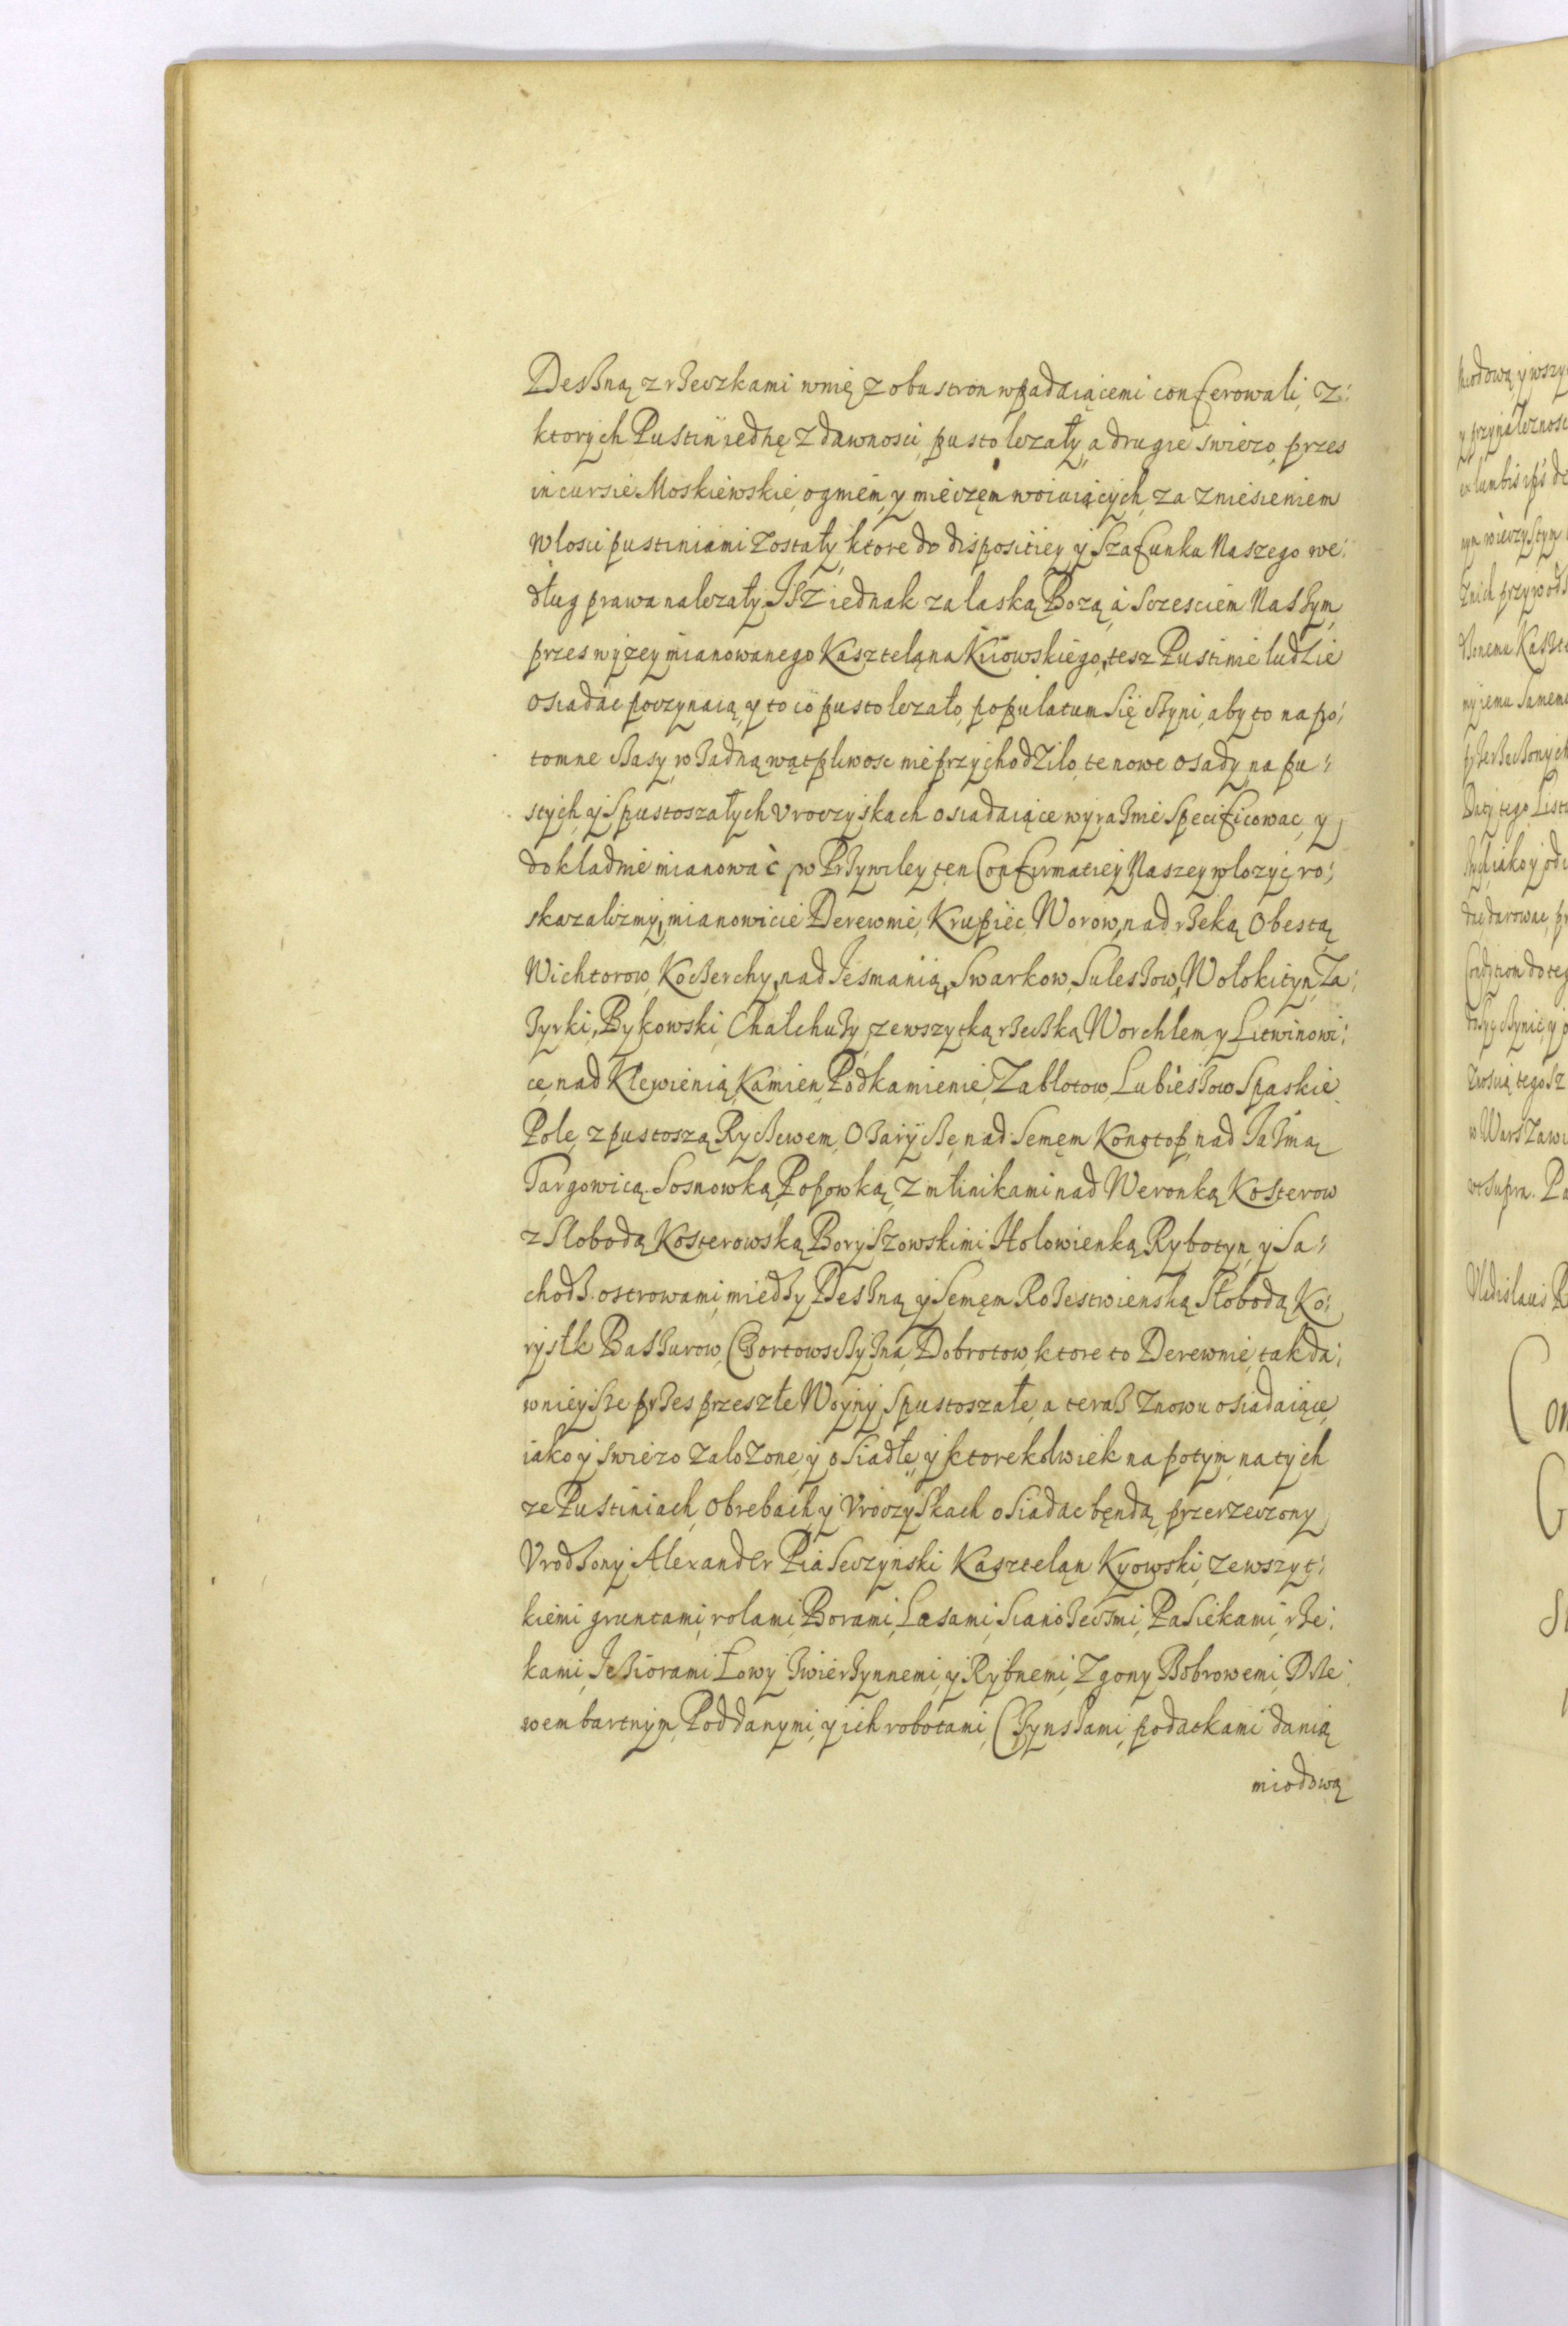 Desną z rzeczkami w nię z obu stron wpadaiącemi conferowali, z
ktorych Pustin iedne z dawnosci pusto lezały, a drugie swiezo przes
incursie Moskiewskie, ogniem y mieczem woiuiących, za zniesieniem
włosci pustiniami zostały, ktore do dispositiey y Szafunku Naszego we:
dług prawa nalezały. Isz iednak za laską Bozą, a sczesciem Naszym,
przes wyzey mianowanego Kasztelana Kiiowskiego, tesz Pustinie ludzie
osiadac poczynaią, y to co pusto lezało, populatum się czyni, aby to na po:
tomne czasy w zadną wątpliwosc nie przychodziło, te nowe osady, na pu:
stych, y Spustoszałych vroczyskach osiadaiące wyraznie Specificowac, y
dokładnie mianowac, w Przywiley ten Confirmatiey Naszey wlozyc, ro:
skazalizmy, mianowicie Derewnie, Krupiec, Worow, nad rzeką Obestą,
Wichtorow, Koczerchy, nad Iesmanią, Swarkow, Suleszow, Wołokityn, Za:
zyrki, Bykowski, Chałchuzy, ze wszytką rzeczką Worchlem, y Litwinowi:
ce, nad Klewienią, Kamien, Podkamienie, Zabłotow, Lubieszow, Spaskie
Pole, z pustoszą Ryczewem, Ozarycze, nad Semem Konotop, nad Iazmą
Targowicą, Sosnowką, Popowką, z młinikami nad Weronką Kosterow
z Słobodą Kosterowską, Boryszowskimi, Hołowienką, Rybotyn, y Sa:
chodz. ostrowami, miedzy Desną y Semem Rozestwienską Słobodą, Ko:
rystk Baszurow, Czortowsczyzna, Dobrotow, ktore to Derewnie, tak da:
wnieysze przes przeszłe Woyny, Spustoszałe, a teraz znowu osiadaiące,
iako y swiezo załozone, y osiadłe, y ktorekolwiek na potym, na tych
ze Pustiniach, obrebach, y Vroczyskach osiadac będą, przerzeczony
Vrodzony Alexander Piaseczynski Kasztelan Kyowski, ze wszyt:
kiemi gruntami, rolami, Borami, Lasami, Sianozeczmi, Pasiekami, rze:
kami, Ieziorami, Łowy Zwierzynnemi, y Rybnemi, Zgony Bobrowemi, Drze:
wem bartnym, Poddanymi, y ich robotami, Czynszami, podatkami, danią
miodową